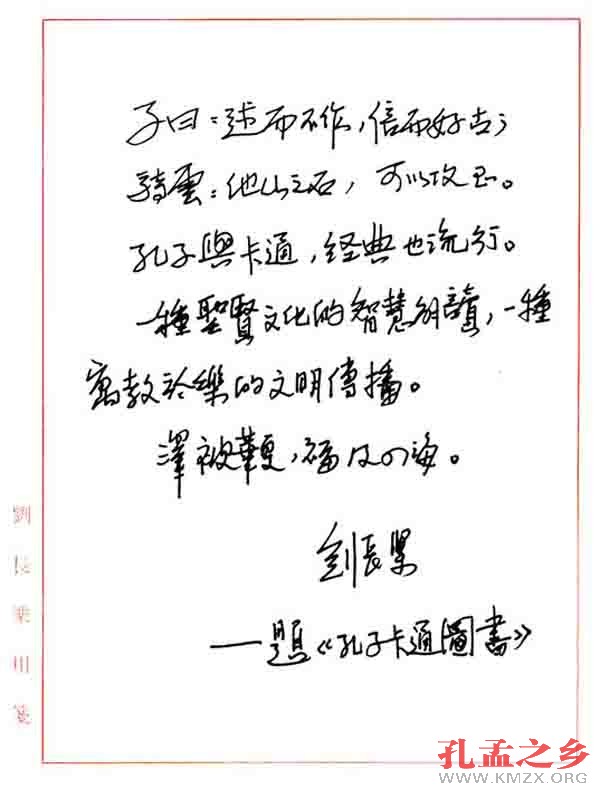 子曰：述而不作，信而好古；
雲：他山之石，可以攻玉。
孔子與卡通，经典也流行。
一種聖賢文化的智慧解讀，一種
寓教於樂的文明傳播。
澤被華夏，福及四海。
劉長樂
——題《孔子卡通圖書》
劉長樂用箋
孔孟之乡
WWW.KMZX.ORG